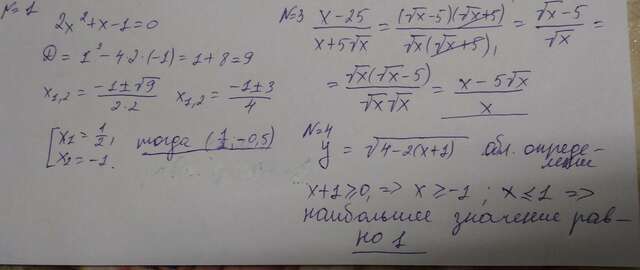 №1
2x²+x-1=0
D = 1²-4·2·(-1)=1+8=9
x₁,₂ = (-1±√9)/(2·2) x₁,₂ = (-1±3)/4
[x₁ = 1/2,
x₂ = -1. тогда (1/2, -0,5)
№3 (x-25)/(x+5√x) = ((√x-5)(√x+5))/(√x(√x+5)₁) = (√x-5)/√x =
= (√x(√x-5))/(√x√x) = (x-5√x)/x
№4
y = √(4-2(x+1)) обл. опреде-
ления
x+1≥0, => x≥-1 ; x≤1 =>
наибольшее значение рав-
но 1